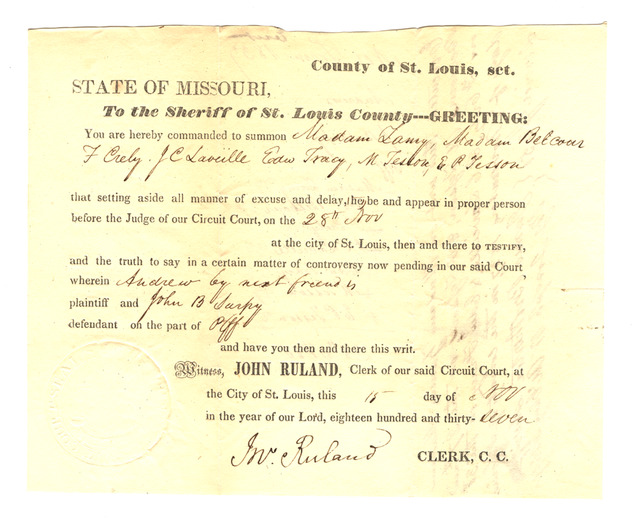 County of St. Louis, sct.
STATE OF MISSOURI,
To the Sheriff of St. Louis County---GREETING:
You are hereby commanded to summon Madam Lamy, Madam Belcour
F Crely. J C Laveille Edw Tracy, M Tesson, E P Tesson
that setting aside all manner of excuse and delay, they be and appear in proper person
before the Judge of our Circuit Court, on the 28th Nov
at the city of St. Louis, then and there to TESTIFY,
and the truth to say in a certain matter of controversy now pending in our said Court
wherein Andrew by next friend is
plaintiff and John B Sarpy
defendant on the part of Plff
and have you then and there this writ.
Witness, JOHN RULAND, Clerk of our said Circuit Court, at
the City of St. Louis, this 15 day of Nov
in the year of our Lord, eighteen hundred and thirty-seven
Jno. Ruland CLERK, C. C.